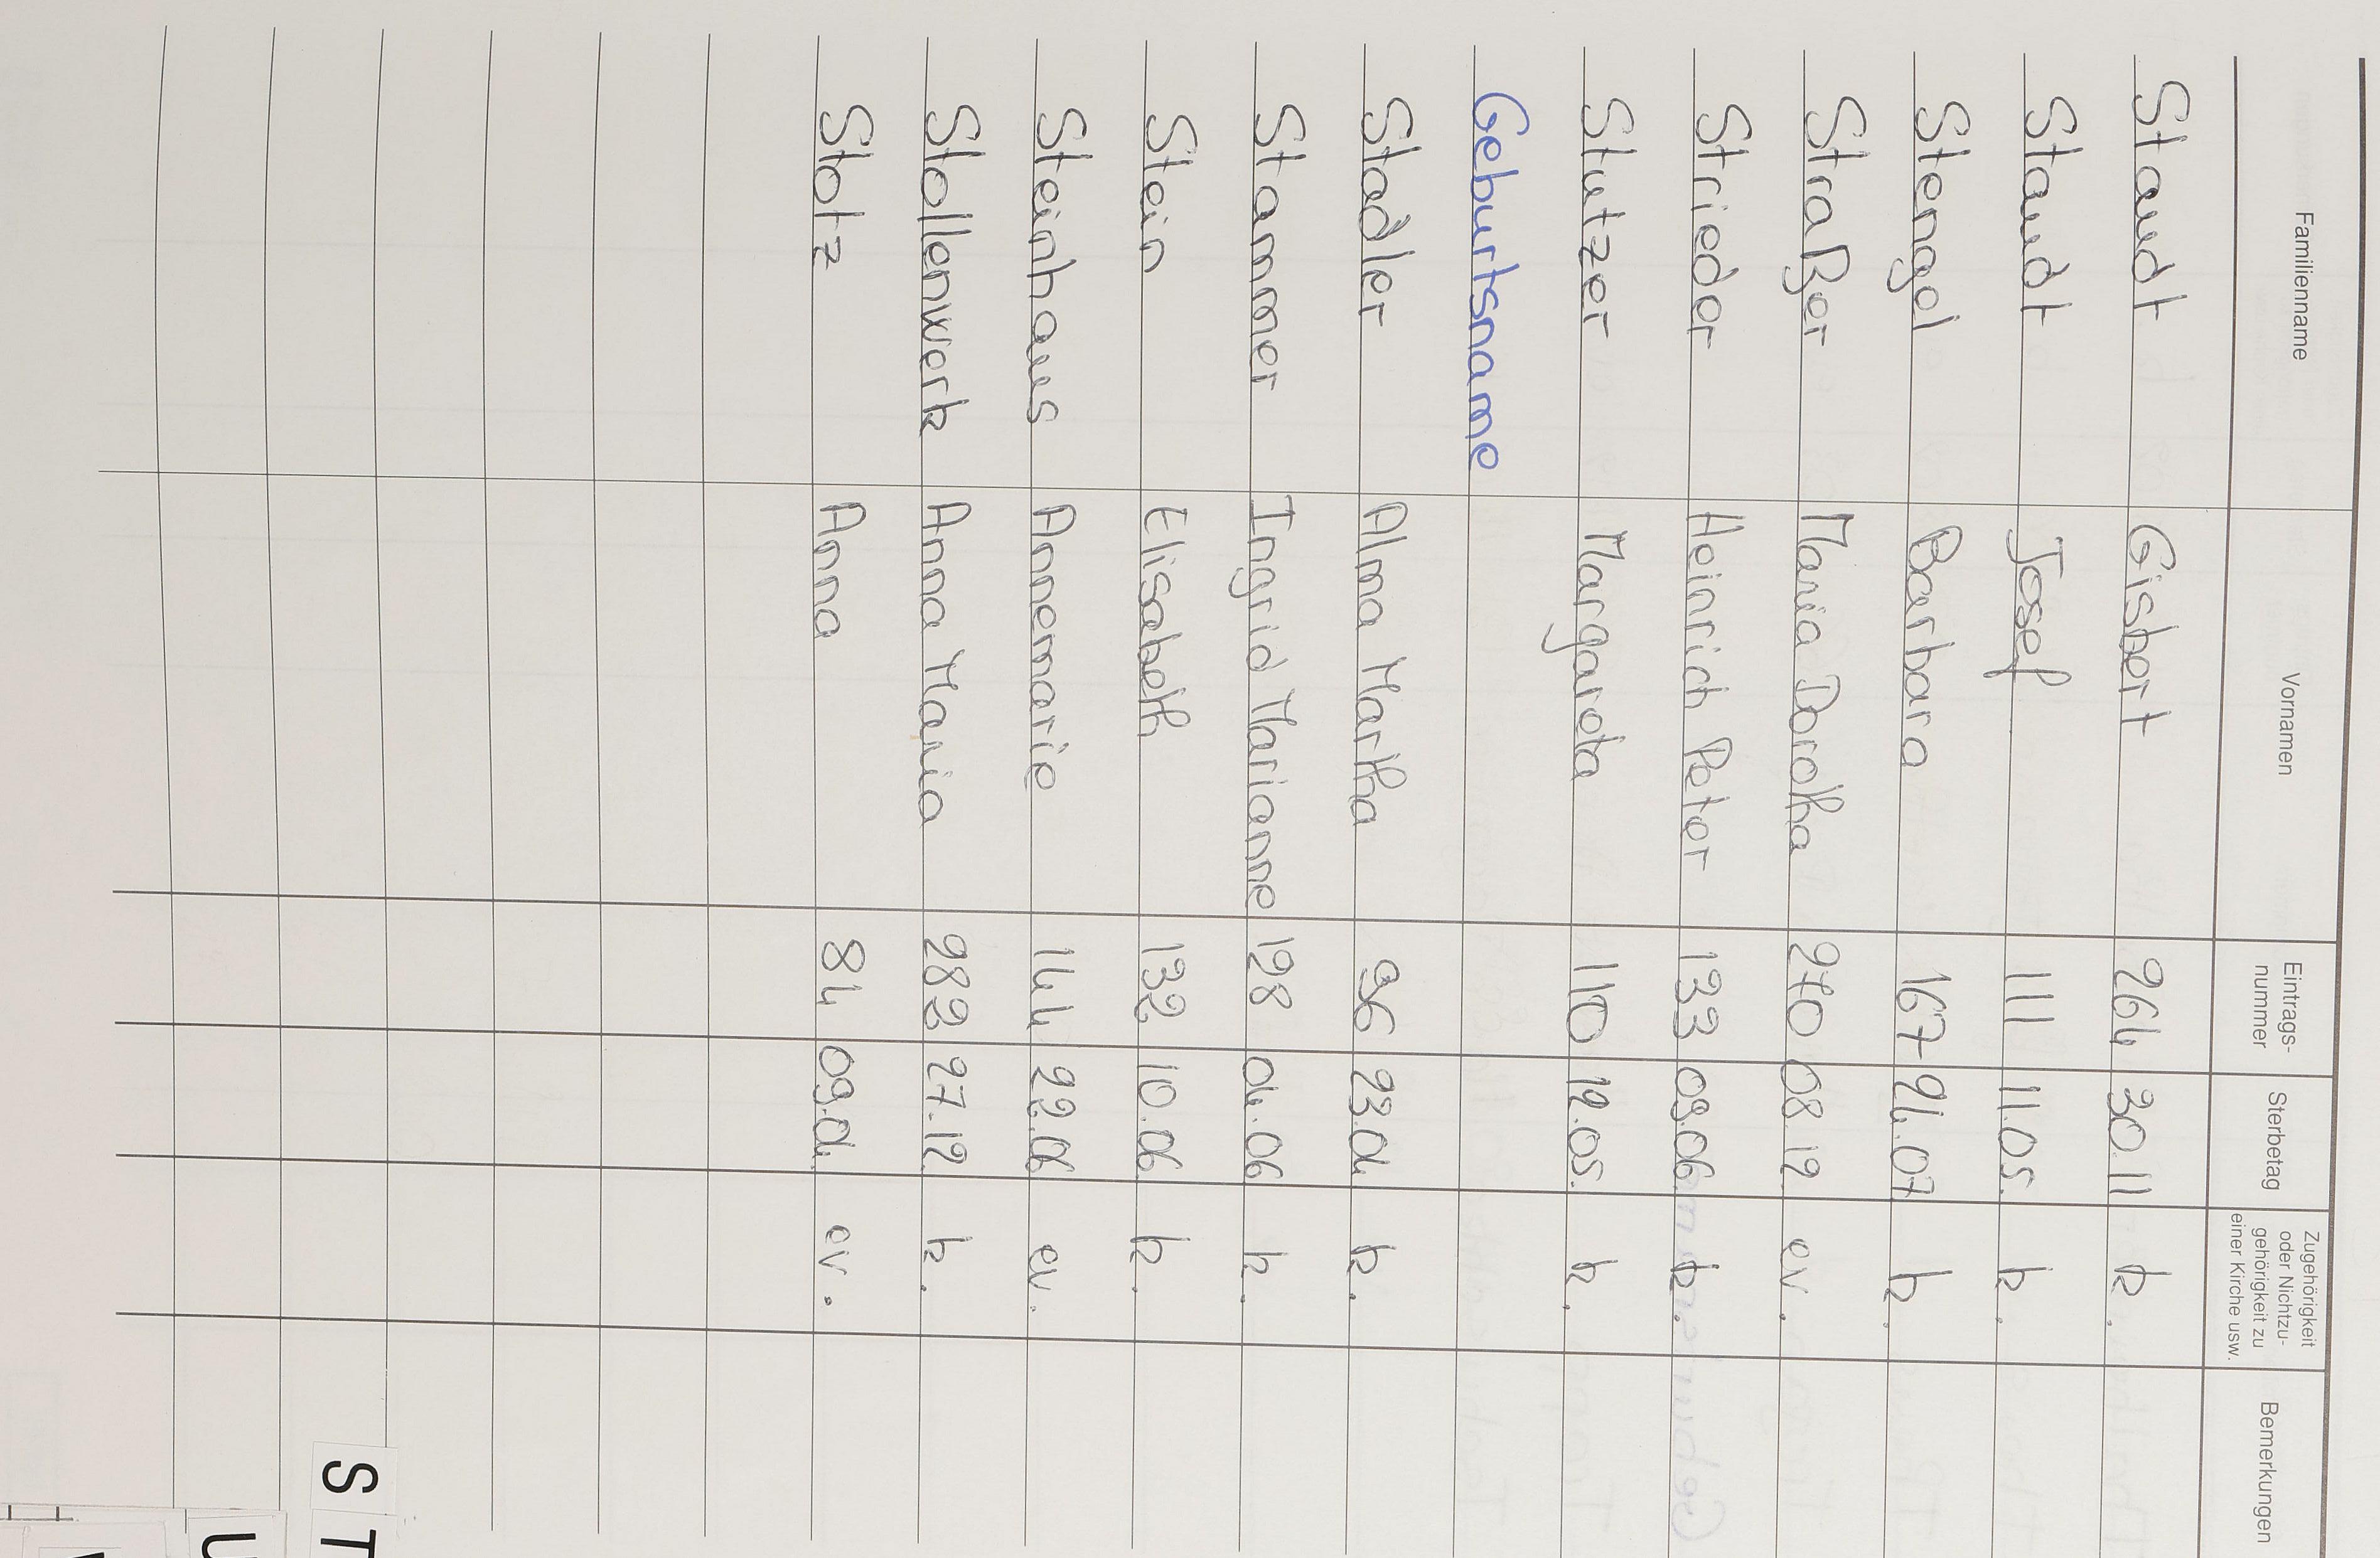 Familienname Vornamen Eintrags-nummer Sterbetag Zugehörigkeit oder Nichtzu-gehörigkeit zu einer Kirche usw. Bemerkungen
Staudt Gisbert 264 30.11 k.
Staudt Josef 111 11.05. k.
Stengel Barbara 167 24.07 k.
Straßer Maria Dorotha 270 08.12. ev.
Strieder Heinrich Peter 133 09.06. k.
Stutzer Margareta 110 12.05. k.
Geburtsname
Stadler Alma Martha 96 23.04. k.
Stammer Ingrid Marianne 128 04.06 k.
Stein Elisabeth 132 10.06. k.
Steinhaus Annemarie 144 22.06 ev.
Stollenwerk Anna Maria 282 27.12. k.
Stotz Anna 84 09.04. ev.
S T
U